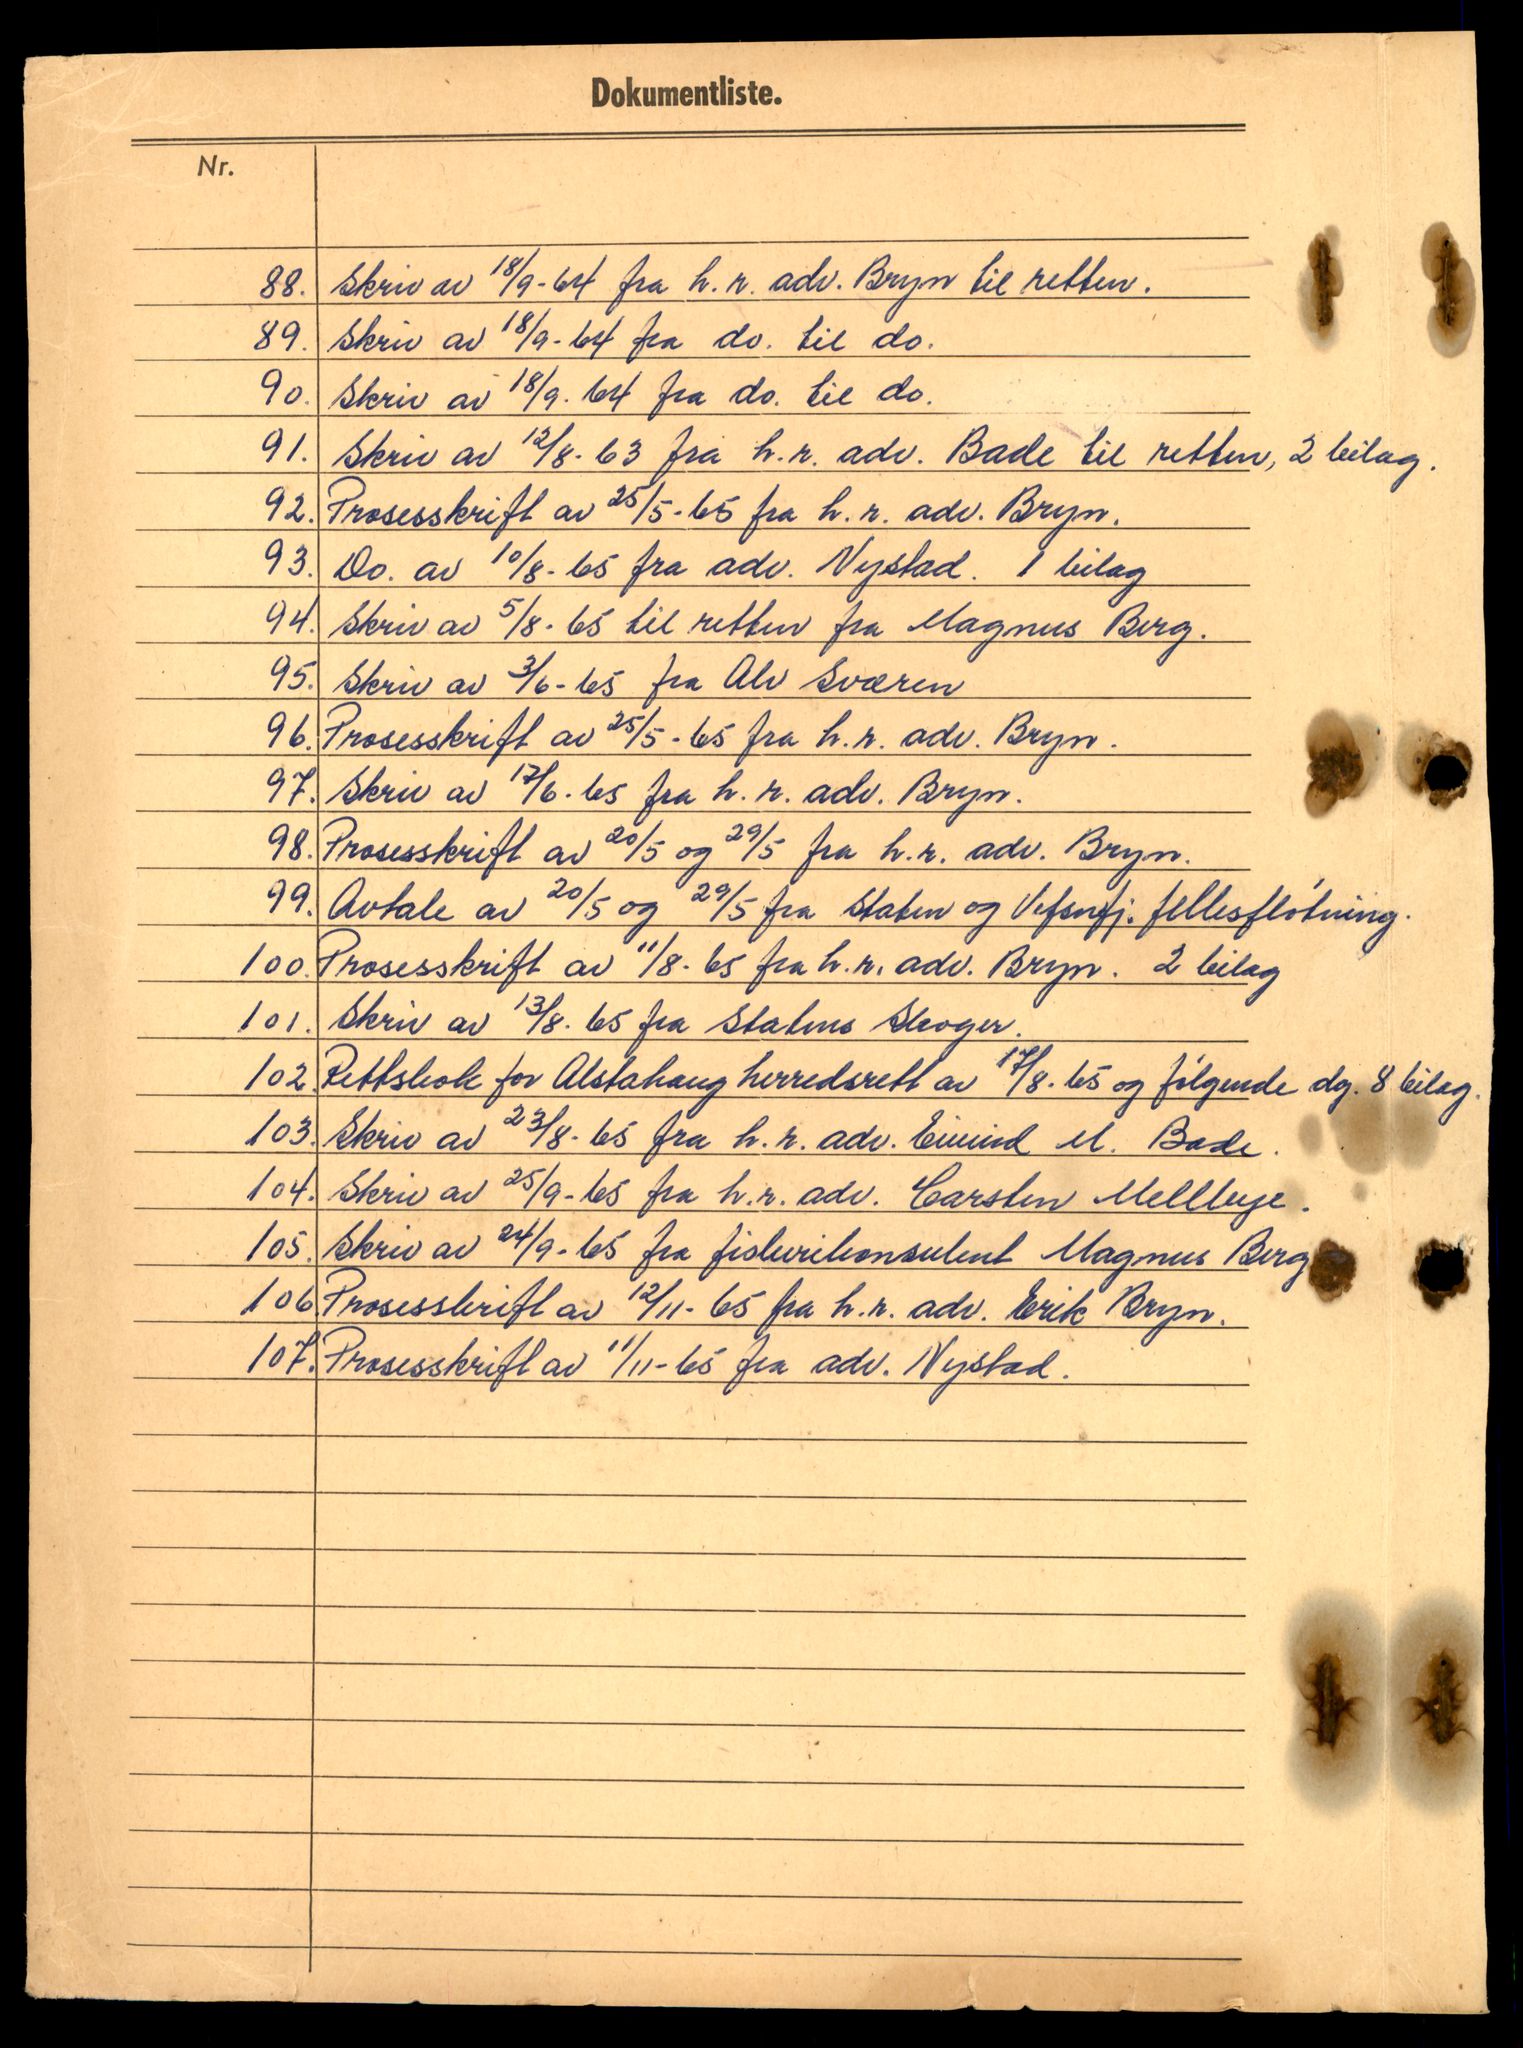 Dokumentliste.
Nr.
88. Skriv av 18/9-64 fra h. r. adv. Bryn til retten.
89. Skriv av 18/9-64 fra do. til do.
90. Skriv av 18/9-64 fra do. til do.
91. Skriv av 12/8-63 fra h. r. adv. Bade til retten, 2 bilag.
92. Prosesskrift av 25/5-65 fra h. r. adv. Bryn.
93. Do. av 10/8-65 fra adv. Nystad. 1 bilag
94. Skriv av 5/8-65 til retten fra Magnus Berg.
95. Skriv av 3/6-65 fra Alv Sværen
96. Prosesskrift av 25/5-65 fra h. r. adv. Bryn.
97. Skriv av 17/6-65 fra h. r. adv. Bryn.
98. Prosesskrift av 20/5 og 29/5 fra h. r. adv. Bryn.
99. Avtale av 20/5 og 29/5 fra Staten og Vefsnfj. fellesfløtning.
100. Prosesskrift av 11/8-65 fra h. r. adv. Bryn. 2 bilag
101. Skriv av 13/8-65 fra Statens Skoger.
102. Rettsbok for Alstahaug herredsrett av 17/8-65 og følgende dg. 8 bilag.
103. Skriv av 23/8-65 fra h. r. adv. Eivind M. Bade.
104. Skriv av 25/9-65 fra h. r. adv. Carsten Mellbye.
105. Skriv av 24/9-65 fra fiskerikonsulent Magnus Berg
106. Prosesskrift av 12/11-65 fra h. r. adv. Erik Bryn.
107. Prosesskrift av 11/11-65 fra adv. Nystad.